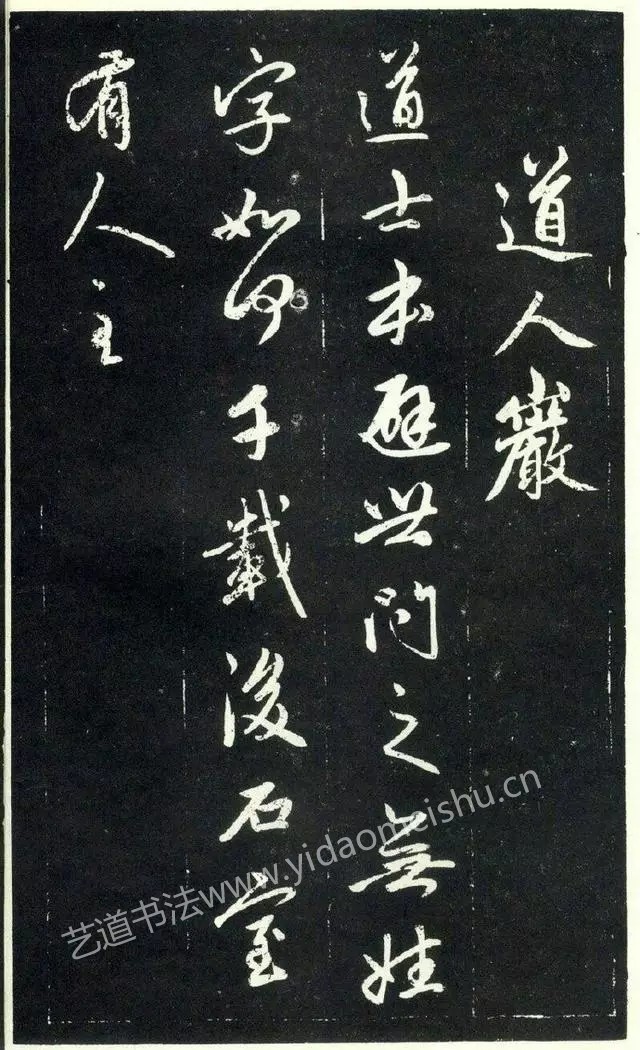 道人巖
道士本避世問之無姓
字如何千載後石室
有人主
艺道书法www.yidaomeishu.cn